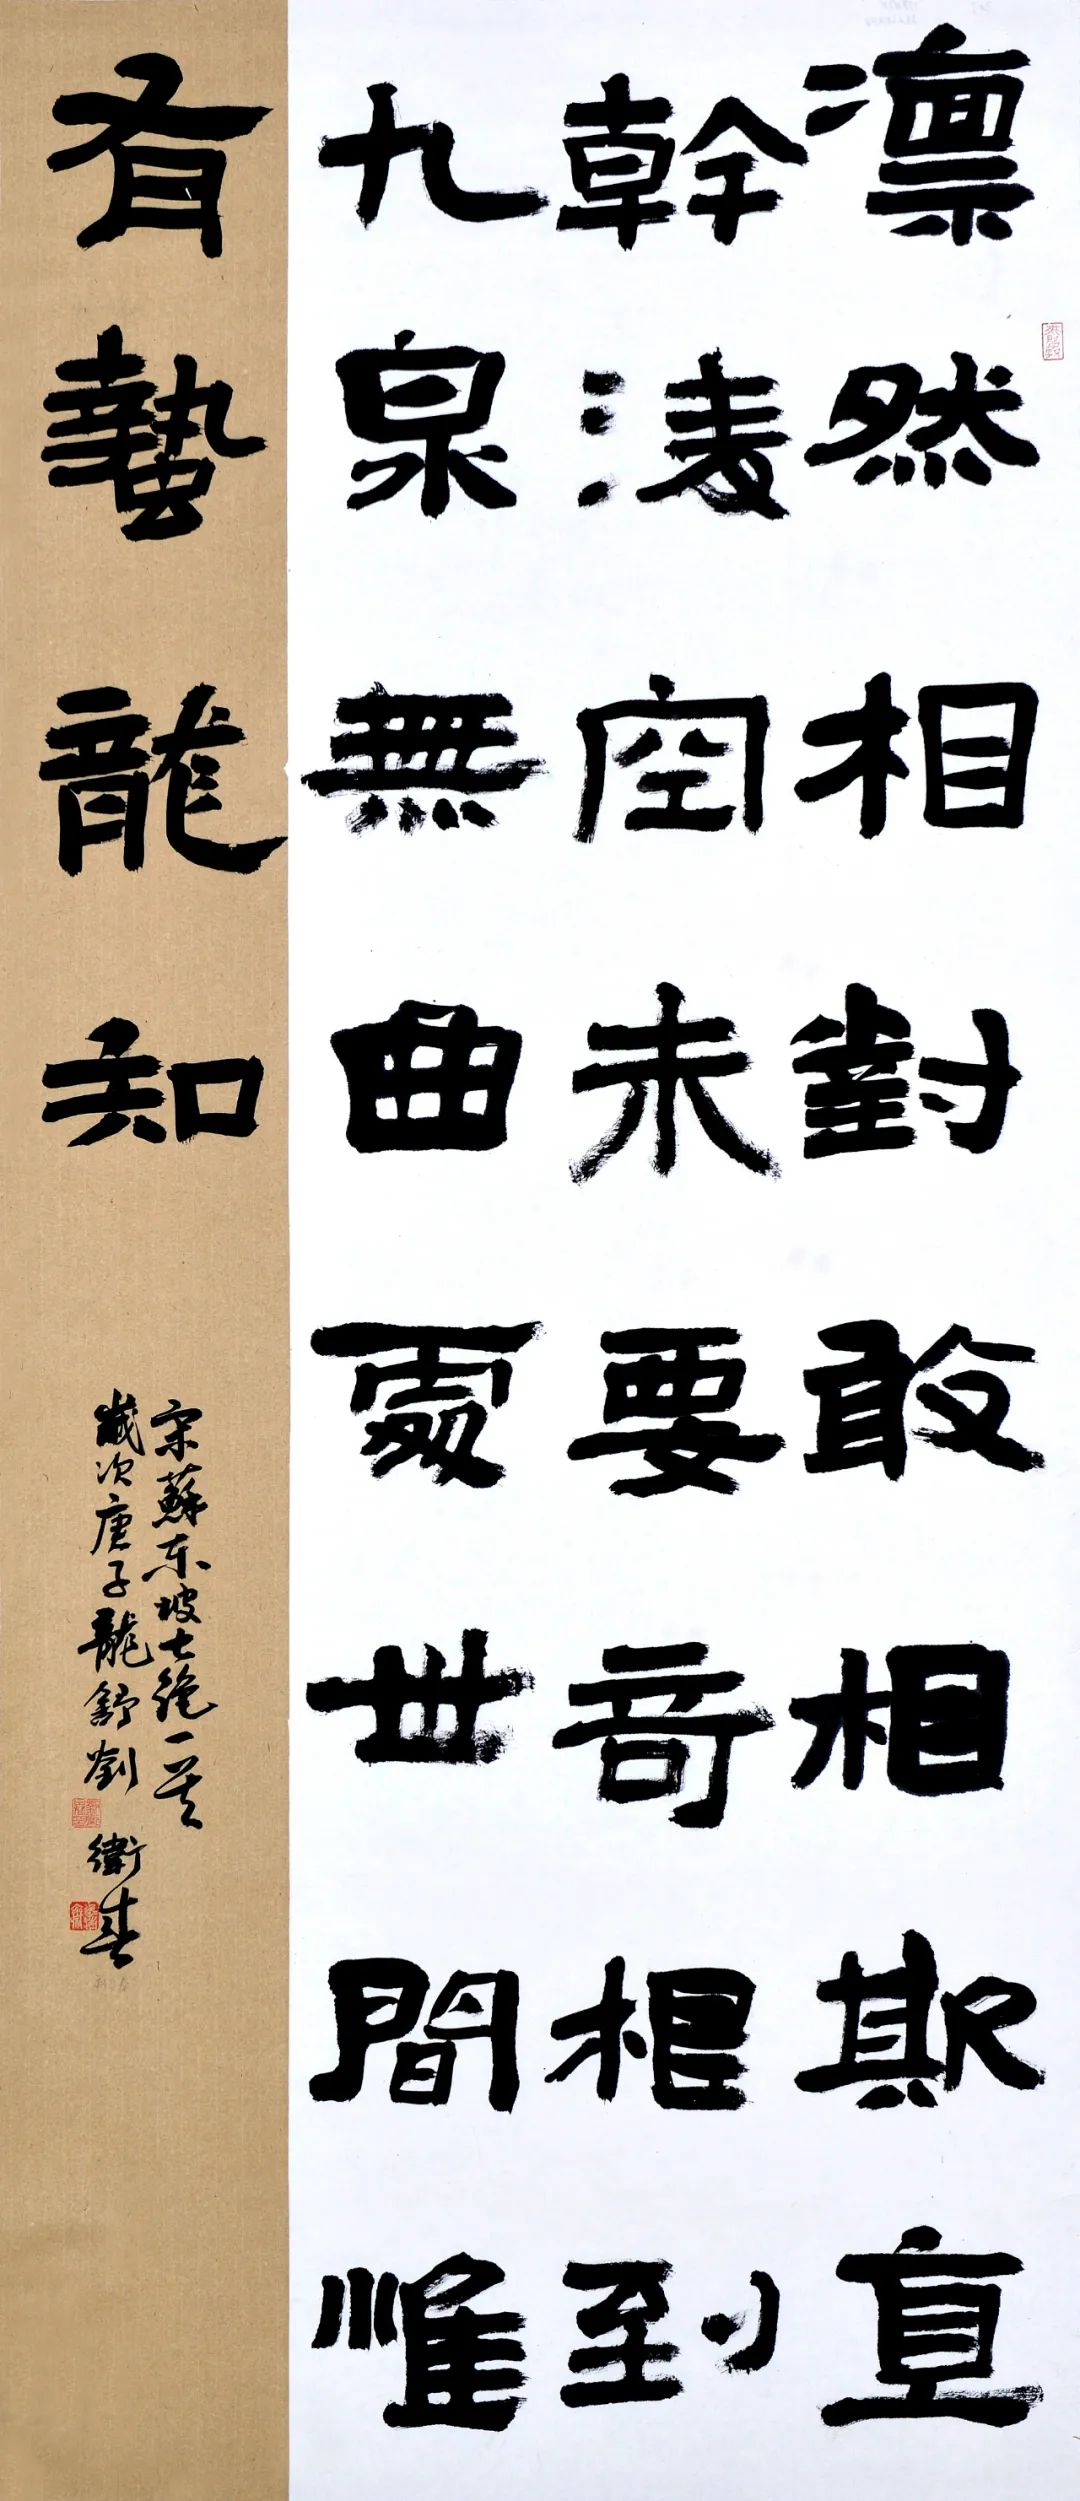 凛然相對敢相欺直
幹凌空未要奇根到
九泉無曲處世間惟
有蟄龍知
宋蘇东坡七绝一首
歲次庚子龍舒劉衛春